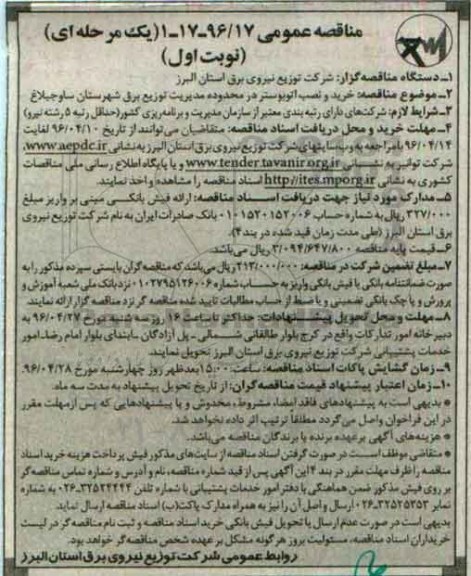 مناقصه عمومی ۹۶/۱۷-۱۷-۱(یک مرحله ای)
(نوبت اول)
۱-دستگاه مناقصه گزار: شرکت توزیع نیروی برق استان البرز
۲-موضوع مناقصه: خرید و نصب اتوبوستر در محدوده مدیریت توزیع برق شهرستان ساوجبلاغ
۳-شرایط لازم: شرکت‌های دارای رتبه بندی معتبر از سازمان مدیریت و برنامه ریزی کشور(حداقل رتبه ۵ رشته نیرو)
۴-مهلت خرید و محل دریافت اسناد مناقصه: متقاضیان می‌توانند از تاریخ ۹۶/۰۴/۱۰ لغایت
۹۶/۰۴/۱۴ با مراجعه به وب سایتهای شرکت توزیع نیروی برق استان البرز به نشانی www.aepdc.ir،
شرکت توانیر به نشانی www.tender.tavanir.org.ir و یا پایگاه اطلاع رسانی ملی مناقصات
کشوری به نشانی http://ites.mporg.ir اسناد مناقصه را مشاهده و اخذ نمایند.
۵-مدارک مورد نیاز جهت دریافت اسناد مناقصه: ارائه فیش بانکی مبنی بر واریز مبلغ
۳۲۷/۰۰۰ ریال به شماره حساب ۰۱۰۱۵۲۰۱۵۲۰۰۶ بانک صادرات ایران به نام شرکت توزیع نیروی
برق استان البرز (طی مدت زمان قید شده در بند ۴).
۶-قیمت پایه مناقصه ۳/۰۹۴/۶۴۷/۸۰۰ ریال می‌باشد.
۷-مبلغ تضمین شرکت در مناقصه: ۲۱۳/۰۰۰/۰۰۰ ریال می‌باشد که مناقصه گران بایستی سپرده مذکور را به
صورت ضمانتنامه بانکی یا فیش بانکی واریز به حساب شماره ۰۱۰۲۷۹۵۱۲۶۰۰۶ نزد بانک ملی شعبه آموزش و
پرورش و یا چک بانکی تضمینی و یا ضبط از حساب مطالبات تایید شده مناقصه گر نزد مناقصه گزار ارائه نمایند.
۸-مهلت و محل تحویل پیشنهادات: حداکثر تا ساعت ۱۶ روز سه شنبه مورخ ۹۶/۰۴/۲۷ به
دبیرخانه امور تدارکات واقع در کرج بلوار طالقانی شمالی-پل آزادگان-ابتدای بلوار امام رضا-امور
خدمات پشتیبانی شرکت توزیع نیروی برق استان البرز تحویل نمایند.
۹-زمان گشایش پاکات اسناد مناقصه: ساعت ۱۵:۰۰ بعدظهر روز چهارشنبه مورخ ۹۶/۰۴/۲۸.
۱۰-زمان اعتبار پیشنهاد قیمت مناقصه گران: از تاریخ تحویل پیشنهاد به مدت سه ماه.
* بدیهی است به پیشنهادهای فاقد امضا، مشروط، مخدوش و یا پیشنهادهایی که پس از مهلت مقرر
در این فراخوان واصل می‌گردد مطلقاً ترتیب اثر داده نخواهد شد.
* هزینه‌های آگهی بر عهده برنده یا برندگان مناقصه می‌باشد.
* متقاضی موظف است در صورت گرفتن اسناد مناقصه از سایت‌های مذکور فیش پرداخت هزینه خرید اسناد
مناقصه را ظرف مهلت مقرر در بند ۴ این آگهی پس از قید شماره مناقصه، نام و آدرس و شماره تماس مناقصه گر
بر روی فیش مذکور ضمن هماهنگی با دفتر امور خدمات پشتیبانی با شماره تلفن ۳۲۵۲۴۴۴۴-۰۲۶ به شماره
نمابر ۳۲۵۲۵۳۵۳-۰۲۶ ارسال و اصل آن را نیز به همراه مدارک پاکت(ب) اسناد مناقصه ارسال نماید.
بدیهی است در صورت عدم ارسال یا تحویل فیش بانکی خرید اسناد مناقصه و ثبت نام مناقصه گر در لیست
خریداران اسناد مناقصه، مسئولیت بروز هر گونه مشکل بر عهده شخص مناقصه گر خواهد بود.
روابط عمومی شرکت توزیع نیروی برق استان البرز